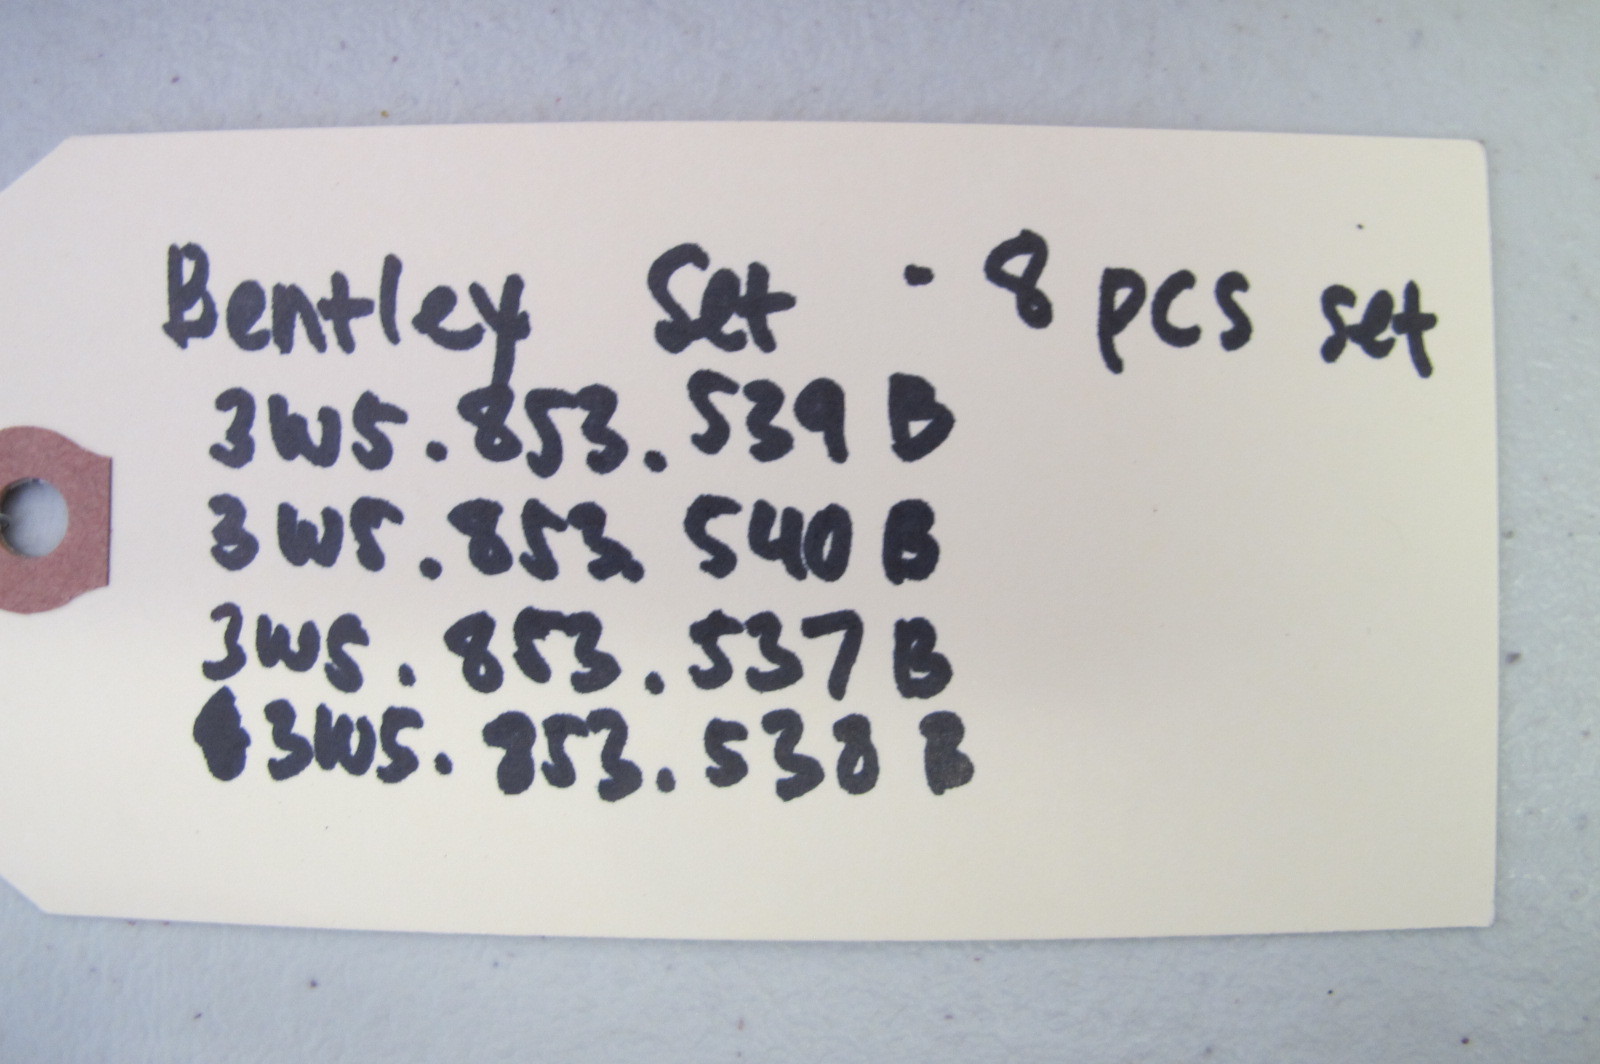 Bentley Set - 8 pcs set
3W5.853.539 B
3W5.853.540 B
3W5.853.537 B
3W5.853.538 B